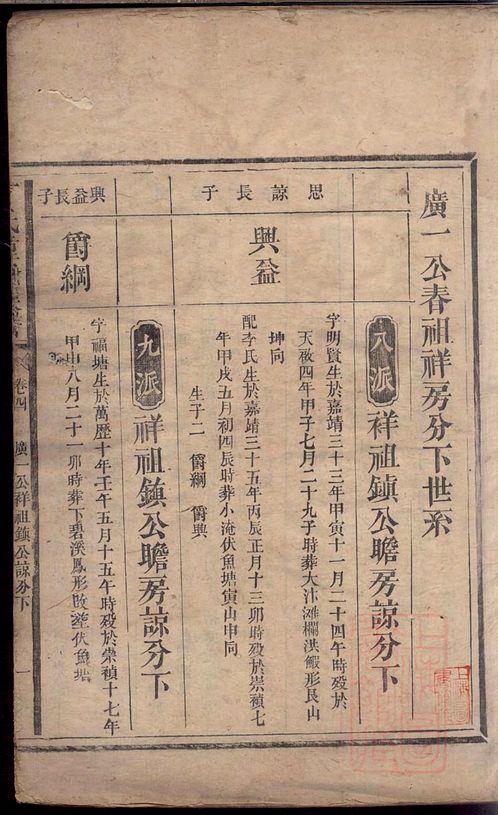 廣一公春祖祥房分下世系
八派 祥祖鎮公瞻房諒分下
思諒長子
興益
字明賢生於嘉靖三十三年甲寅十一月二十四午時殁於
天啟四年甲子七月二十九子時葬大汴灘欄洪鰕形艮山
坤向
配李氏生於嘉靖三十五年丙辰正月十三卯時殁於崇禎七
年甲戌五月初四辰時葬小淹伏魚塘寅山申向
生子二 爵綱 爵興
九派 祥祖鎮公瞻房諒分下
興益長子
爵綱
字福塘生於萬歷十年壬午五月十五午時殁於崇禎十七年
甲申八月二十一卯時葬下碧溪鳳形改塟伏魚塘
卷四 廣一公祥祖鎮公諒分下 一